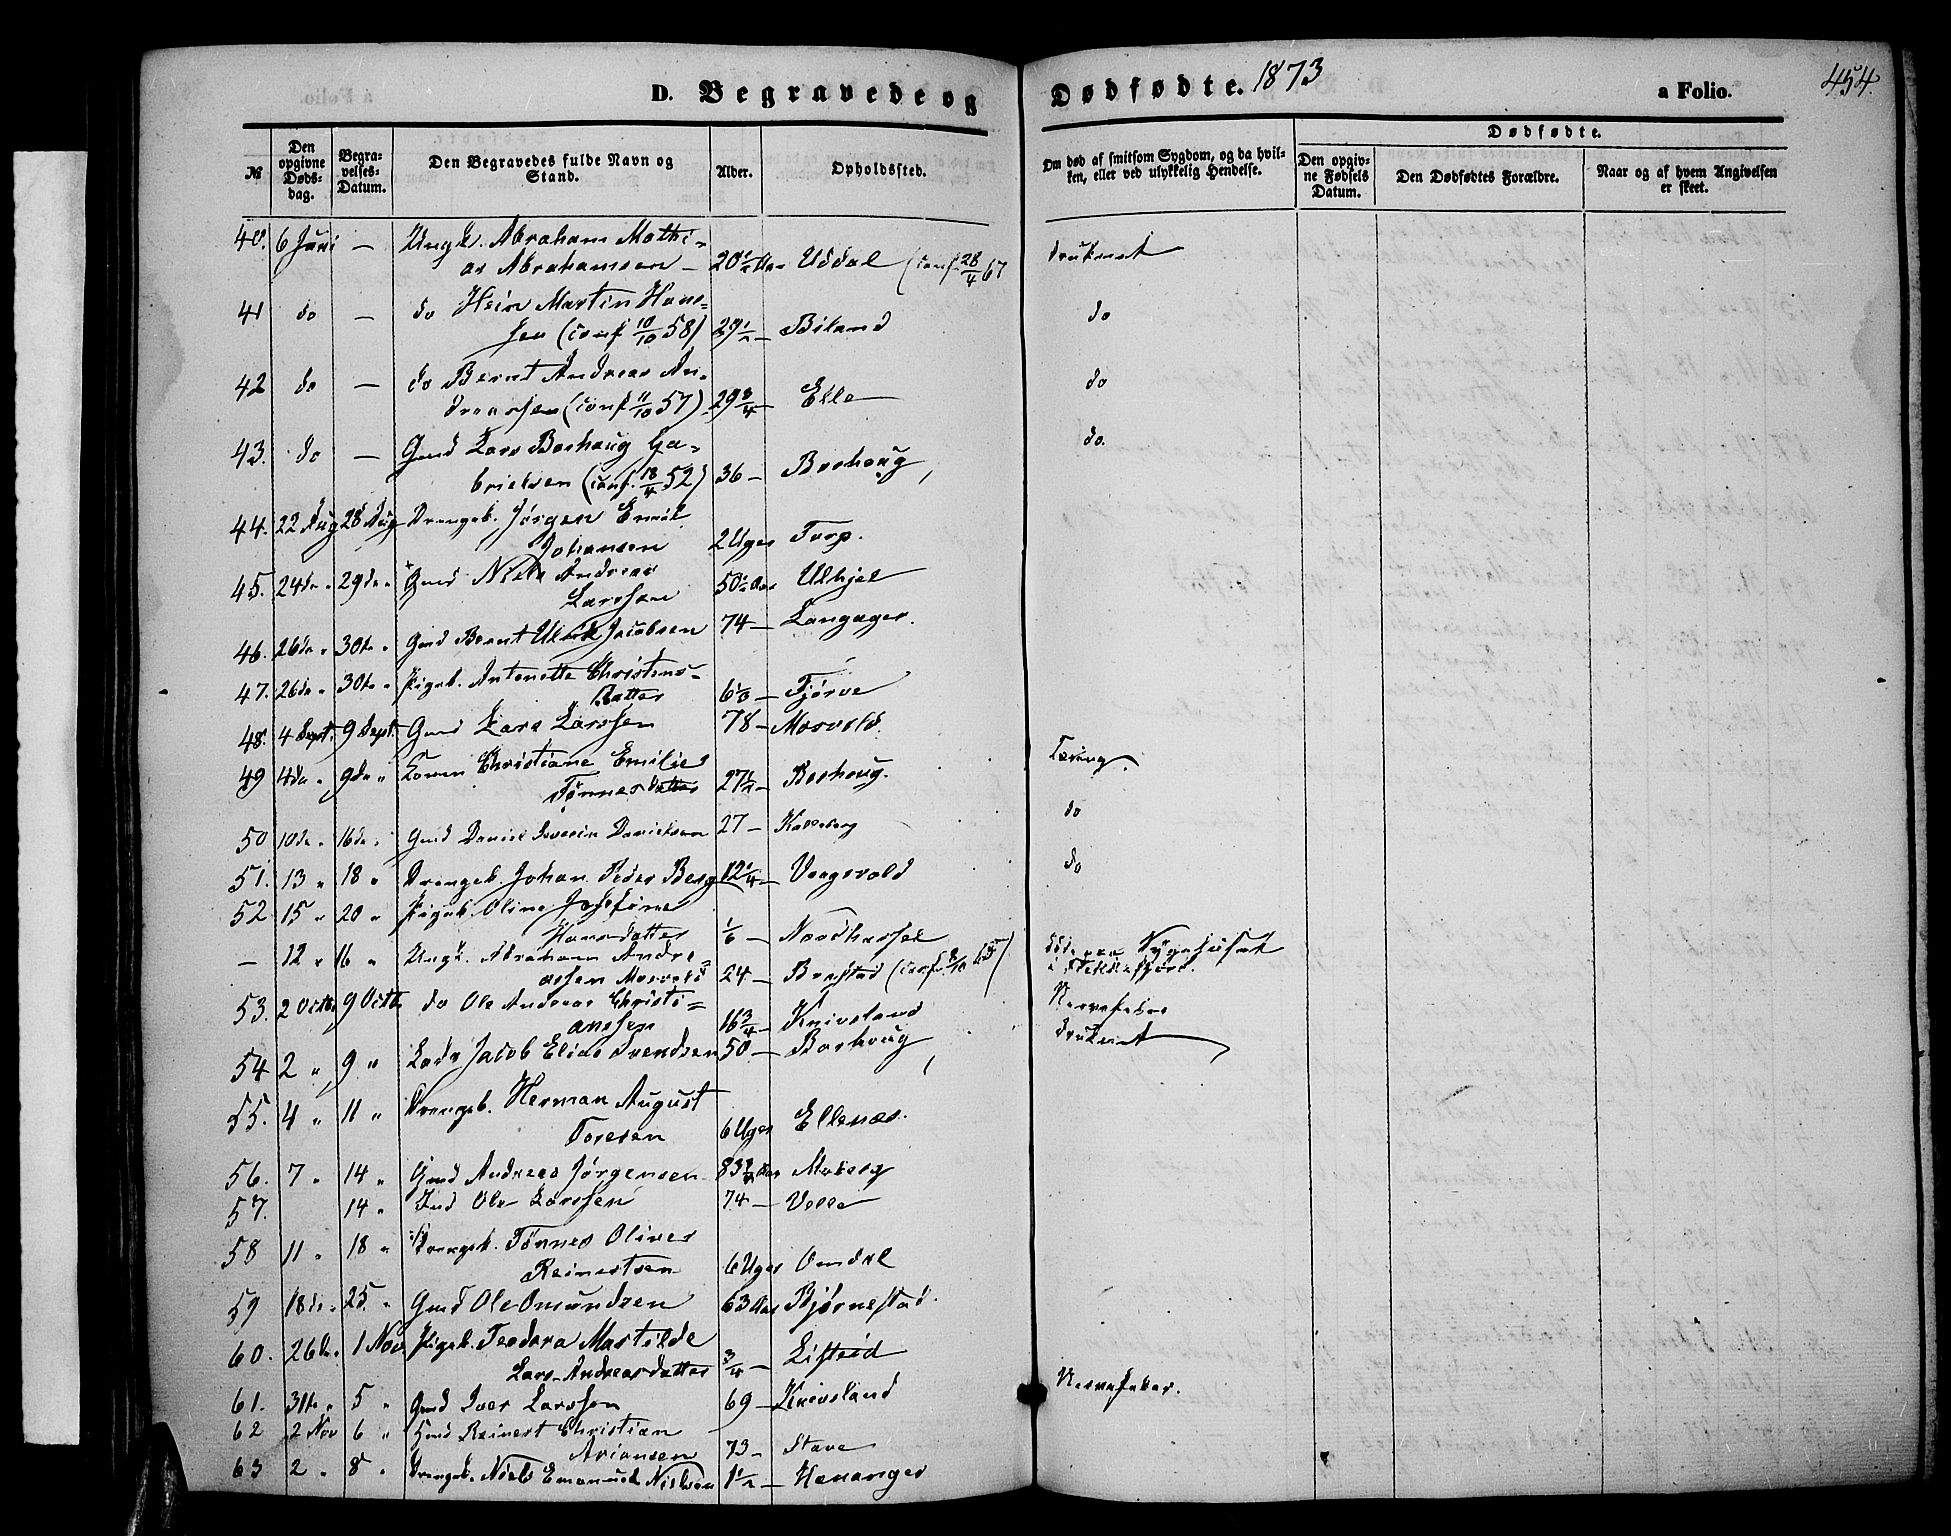 D. Begravede og Dødfødte. 1873
a Folio. 454.
№ Den opgivne Dødsdag. Begravelses-Datum. Den Begravedes fulde Navn og Stand. Alder. Opholdssted. Om død af smitsom Sygdom, og da hvilken, eller ved ulykkelig Hendelse. Dødfødte.
Den opgivne Fødsels Datum. Den Dødfødtes Forældre. Naar og af hvem Angivelsen er skeet.
40. 6 Juni — Ungk. Abraham Mathi=
as Abrahamsen — 20½ Aar Uddal (conf. 28/4 67 druknet
41 do — do Hein Martin Hans=
sen (conf 10/10 58) 29½ — Biland do
42 do — do Bernt Andreas An=
dreassen (conf 11/10 57) 29¾ — Elle do
43. do — Gmd Lars Borhaug Ga=
brielsen (conf. 18/4 52) 36 — Borhaug do.
44. 22 Aug 28 Aug Drengeb. Jørgen Emil
Johansen 2 Uger Torp.
45. 24 do " 29 do " Gmd Niels Andreas
Larssen 50½ Aar Ulhjel
46. 26 do " 30 te " Gmd Bernt Ulrik Jacobsen 74 — Langager.
47. 26 do " 30 te " Pigeb. Antonette Christens=
Datter 6 — Tjørve
48. 4 Sept. 9 Sept. Gmd Lars Larssen 78 — Morvold.
49 4 de " 9 de " Konen Christiane Emilie
Tønnesdatter 27½ — Borhaug. Tæring.
50 10 de " 16 de " Gmd Daniel Severin Danielsen 27 — Kalleberg do
51. 13 " 18 " Drengeb. Johan Peder Berg 12¼ — Vaagsvold do
52 15 " 20 " Pigeb. Oline Josefine
Hansdatter — Nordhassel
— 12 " 16 " Ungk. Abraham Andre=
assen Morvold 24 — Brastad (conf. død paa Sygehuset
i Flekkefjord.
53. 2 Octb. 9 Octb. do Ole Andreas Christi=
anssen 16¾ — Knivsland Nervefeber
54 2 " 9 " Lods Jacob Elias Svendsen 50 — Borhaug druknet
55. 4 " 11 " Drengeb. Herman August
Toresen 6 Uger Ellenæs.
56. 7 " 14 " Gmd Andreas Jørgensen 83½ Aar Moberg
57. 14 " Ind Ole Larssen 74 — Velle
58 11 " 18 " Drengeb. Tønnes Oliver
Reinertsen 6 Uger Omdal
59 18 de " 25 " Gmd Ole Omundsen 63 Aar Bjørnestad.
60. 26 de " 1 Nov. Pigeb. Teodora Mathilde
Lars Andreasdatter ¾ — Listeid
61. 31 te " 5 " Gmd Iver Larssen 69 — Knivsland Nervefeber.
62 2 Nov 6 " Gmd Reinert Christian
Ariansen 73 — Stave
63 2 " 8 " Drengeb. Niels Emanuel Nielsen 1½ — Hananger